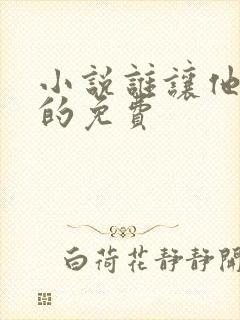 小說誰讓他
的免費
白荷花靜靜開